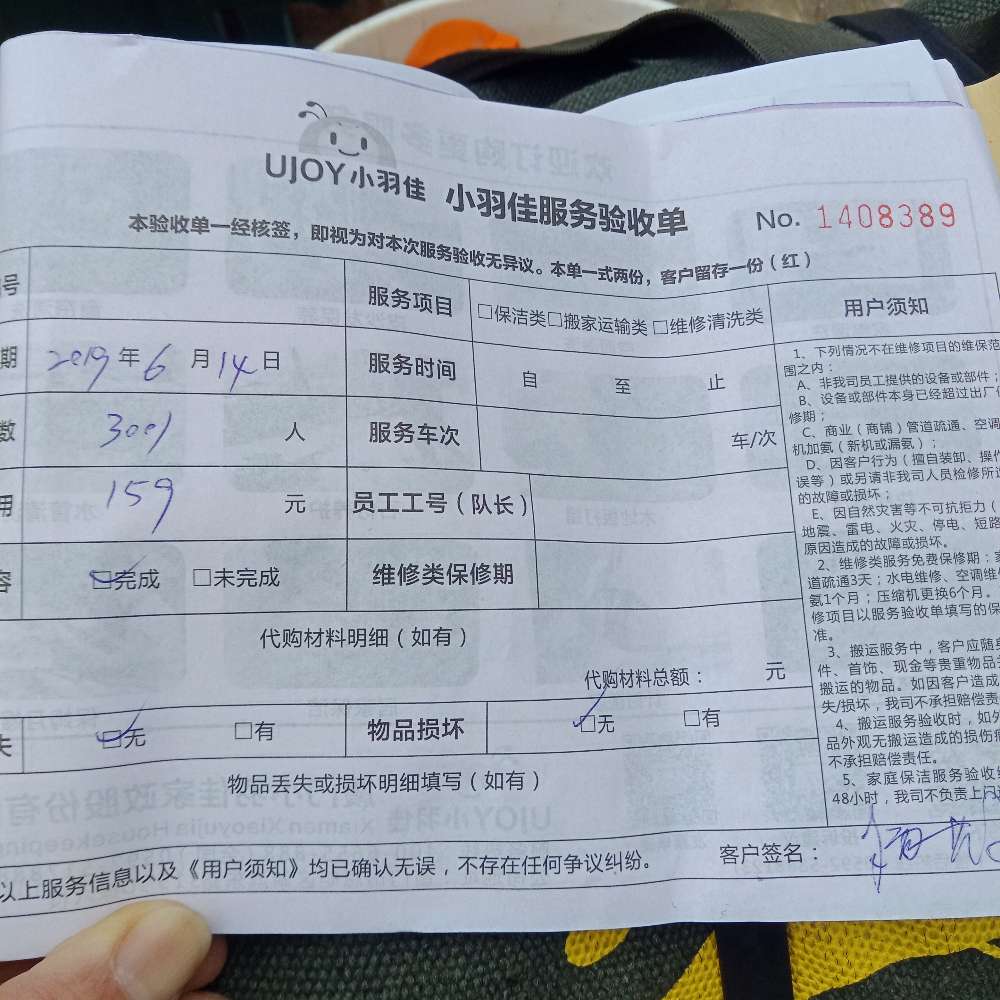 UJOY小羽佳 小羽佳服务验收单 No. 1408389
本验收单一经核签，即视为对本次服务验收无异议。本单一式两份，客户留存一份（红）
号 服务项目 □保洁类□搬家运输类□维修清洗类 用户须知
期 2019年6月14日 服务时间 自 至 止
数 3001 人 服务车次 车/次
用 159 元 员工工号（队长）
容 □完成 □未完成 维修类保修期
代购材料明细（如有）
代购材料总额： 元
失 □无 □有 物品损坏 □无 □有
物品丢失或损坏明细填写（如有）
以上服务信息以及《用户须知》均已确认无误，不存在任何争议纠纷。 客户签名：
1、下列情况不在维修项目的维保范
围之内：
A、非我司员工提供的设备或部件；
B、设备或部件本身已经超过出厂
修期；
C、商业（商铺）管道疏通、空调
机加氨（新机或漏氨）；
D、因客户行为（擅自装卸、操作
误等）或另请非我司人员检修所
的故障或损坏；
E、因自然灾害等不可抗拒力（
地震、雷电、火灾、停电、短路
原因造成的故障或损坏。
2、维修类服务免费保修期：
道疏通3天；水电维修、空调维
氨1个月；压缩机更换6个月。
修项目以服务验收单填写的保
准。
3、搬运服务中，客户应随身
件、首饰、现金等贵重物品
搬运的物品。如因客户造成
失/损坏，我司不承担赔偿责
4、搬运服务验收时，如外
品外观无搬运造成的损伤
不承担赔偿责任。
5、家庭保洁服务验收
48小时，我司不负责上门